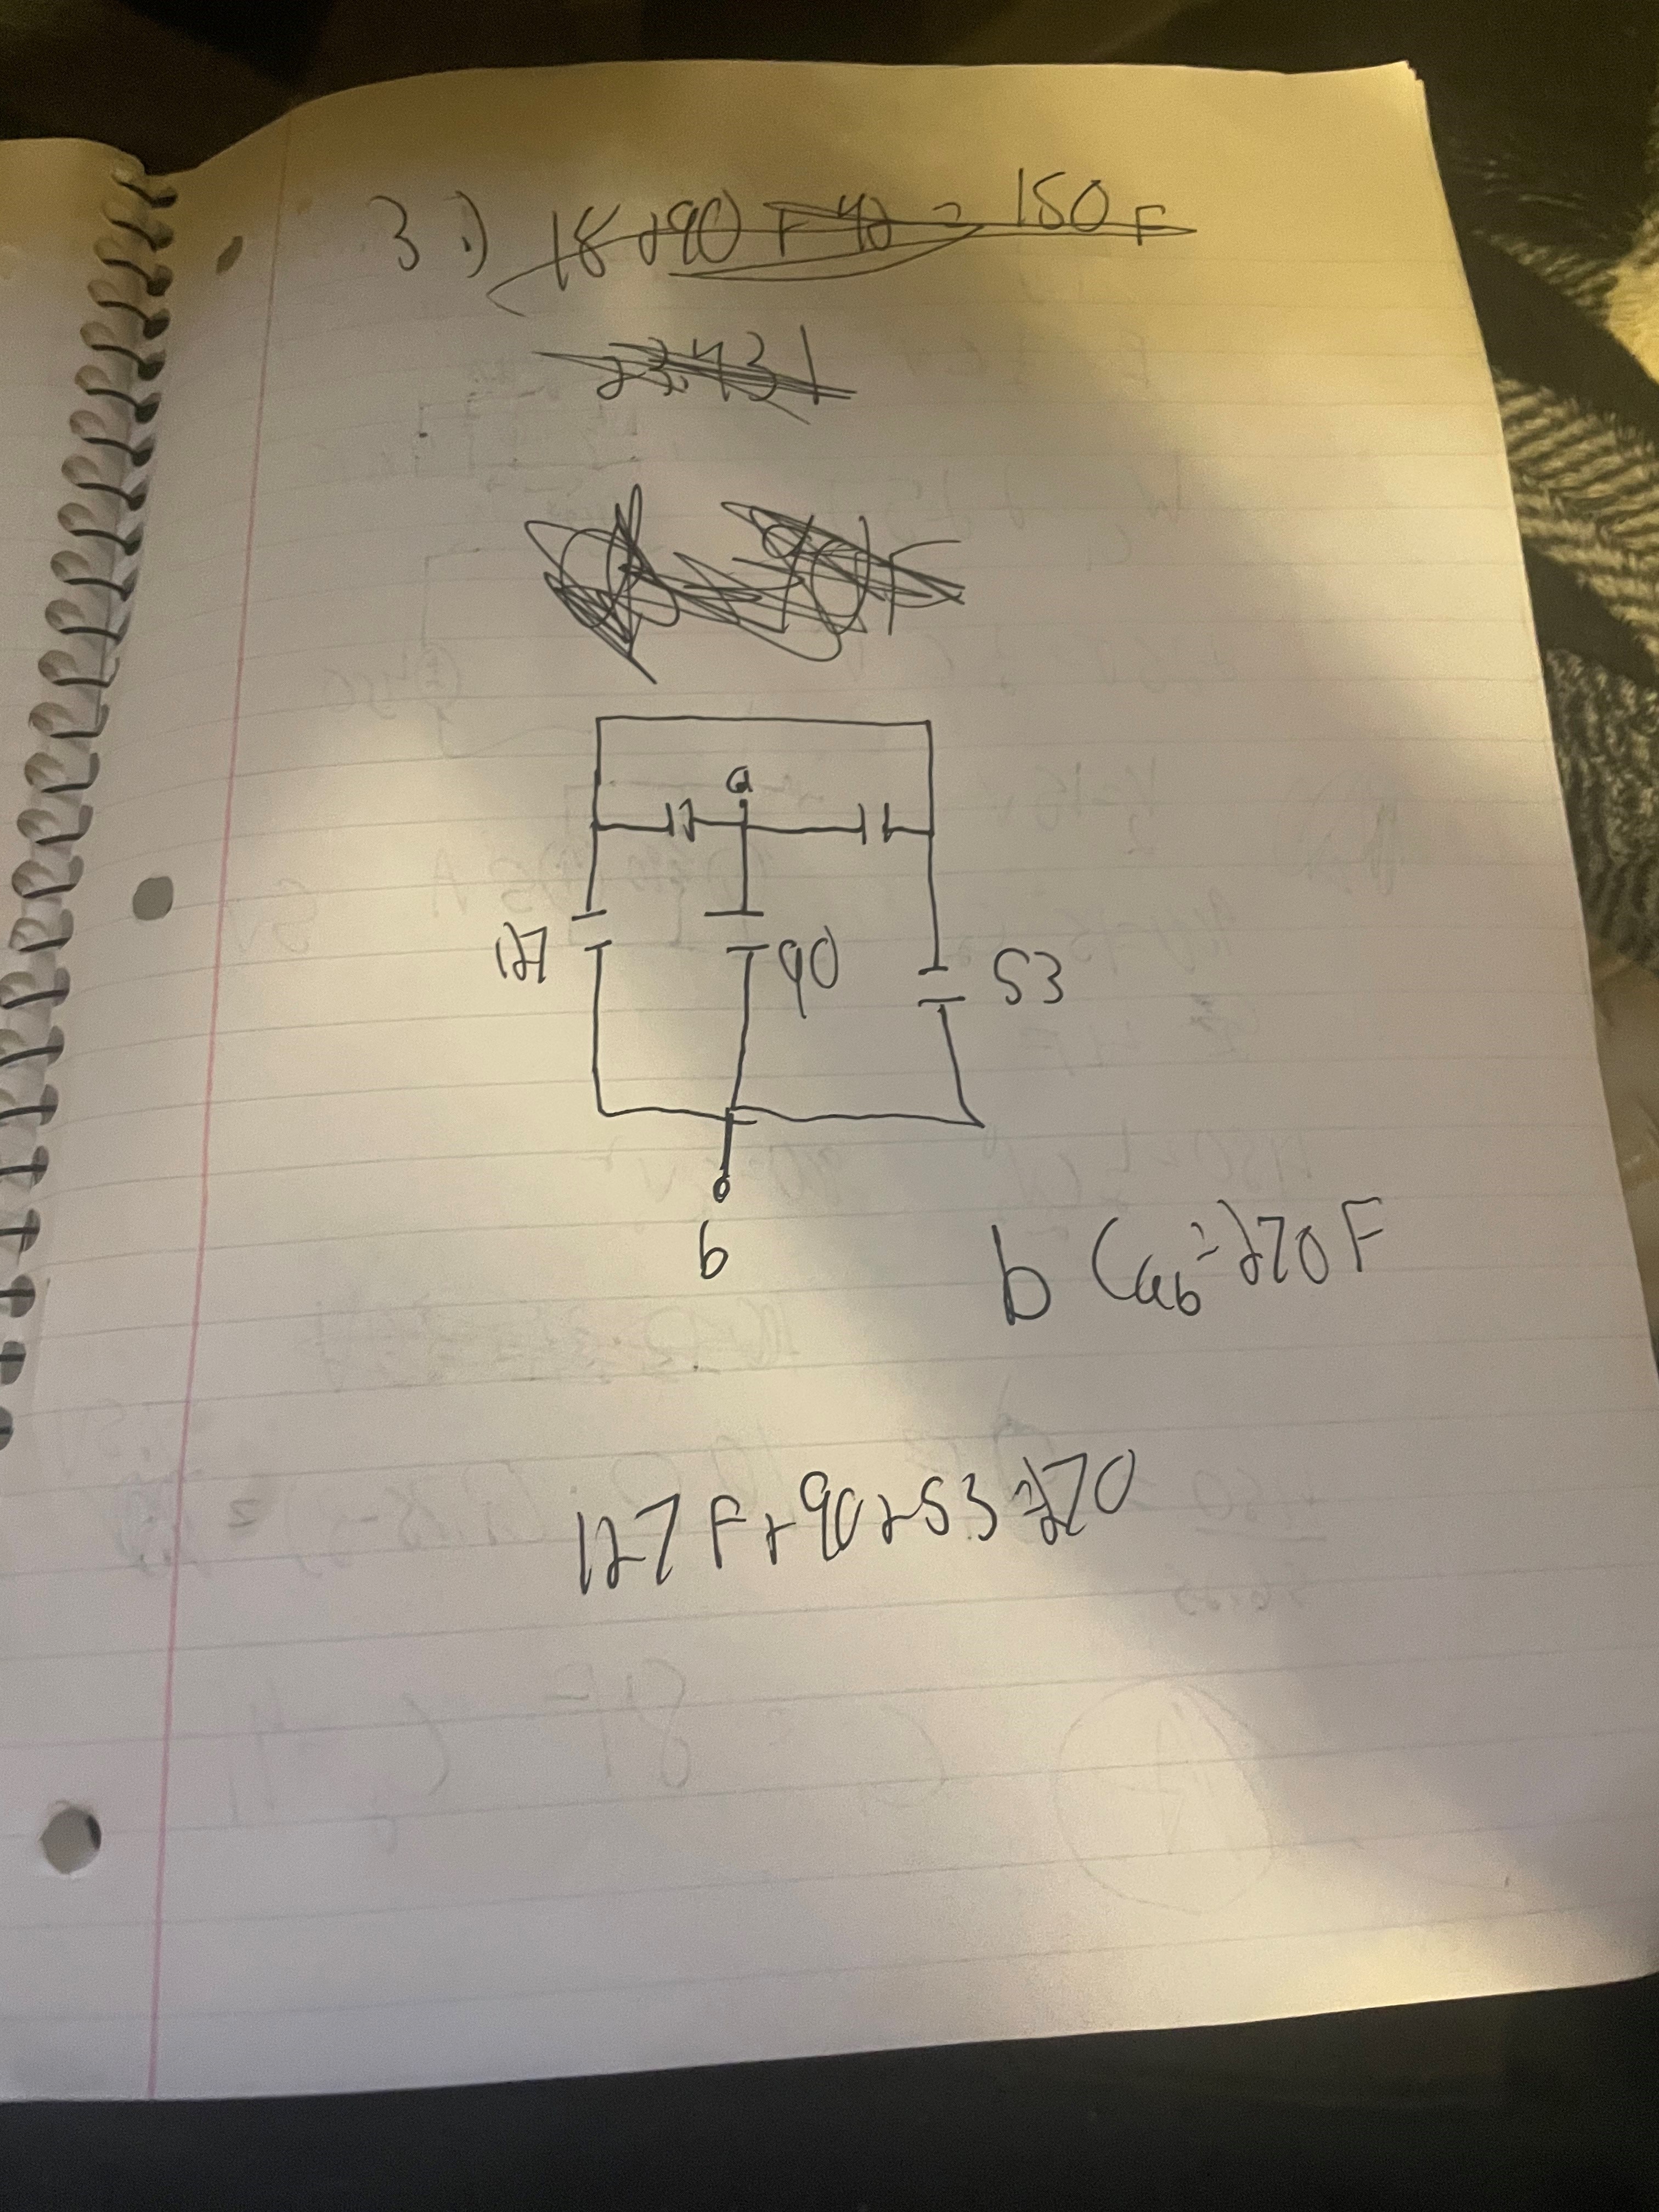 3.) 18+90+42=150F
23.431
a
127
90
53
b
b Cab=270F
127F+90+53=270